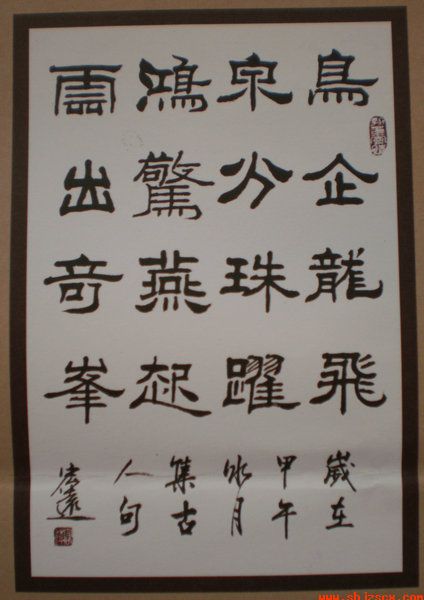 鳥企龍飛
泉分珠躍
鴻驚燕起
雲出奇峯
歲在
甲午
冰月
集古
人句
www.sbjzscx.com